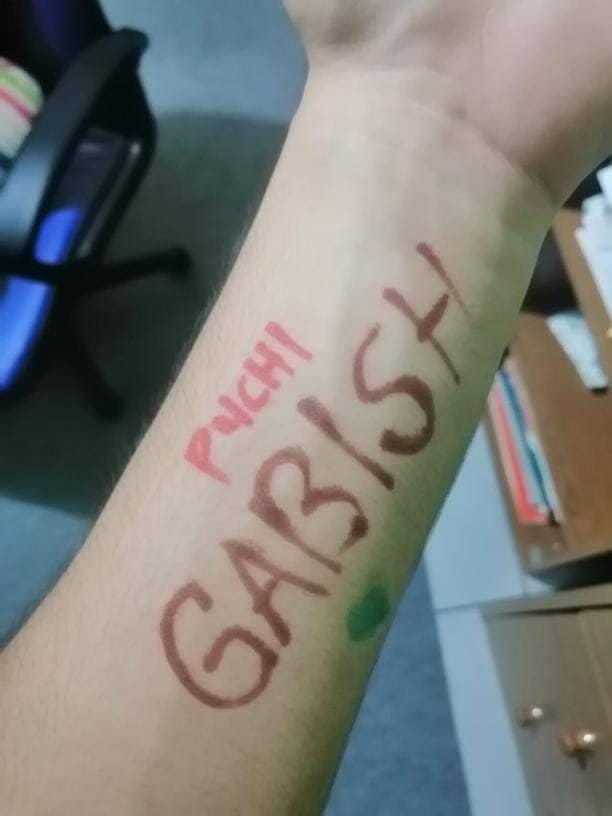 PUCHI
GABISH